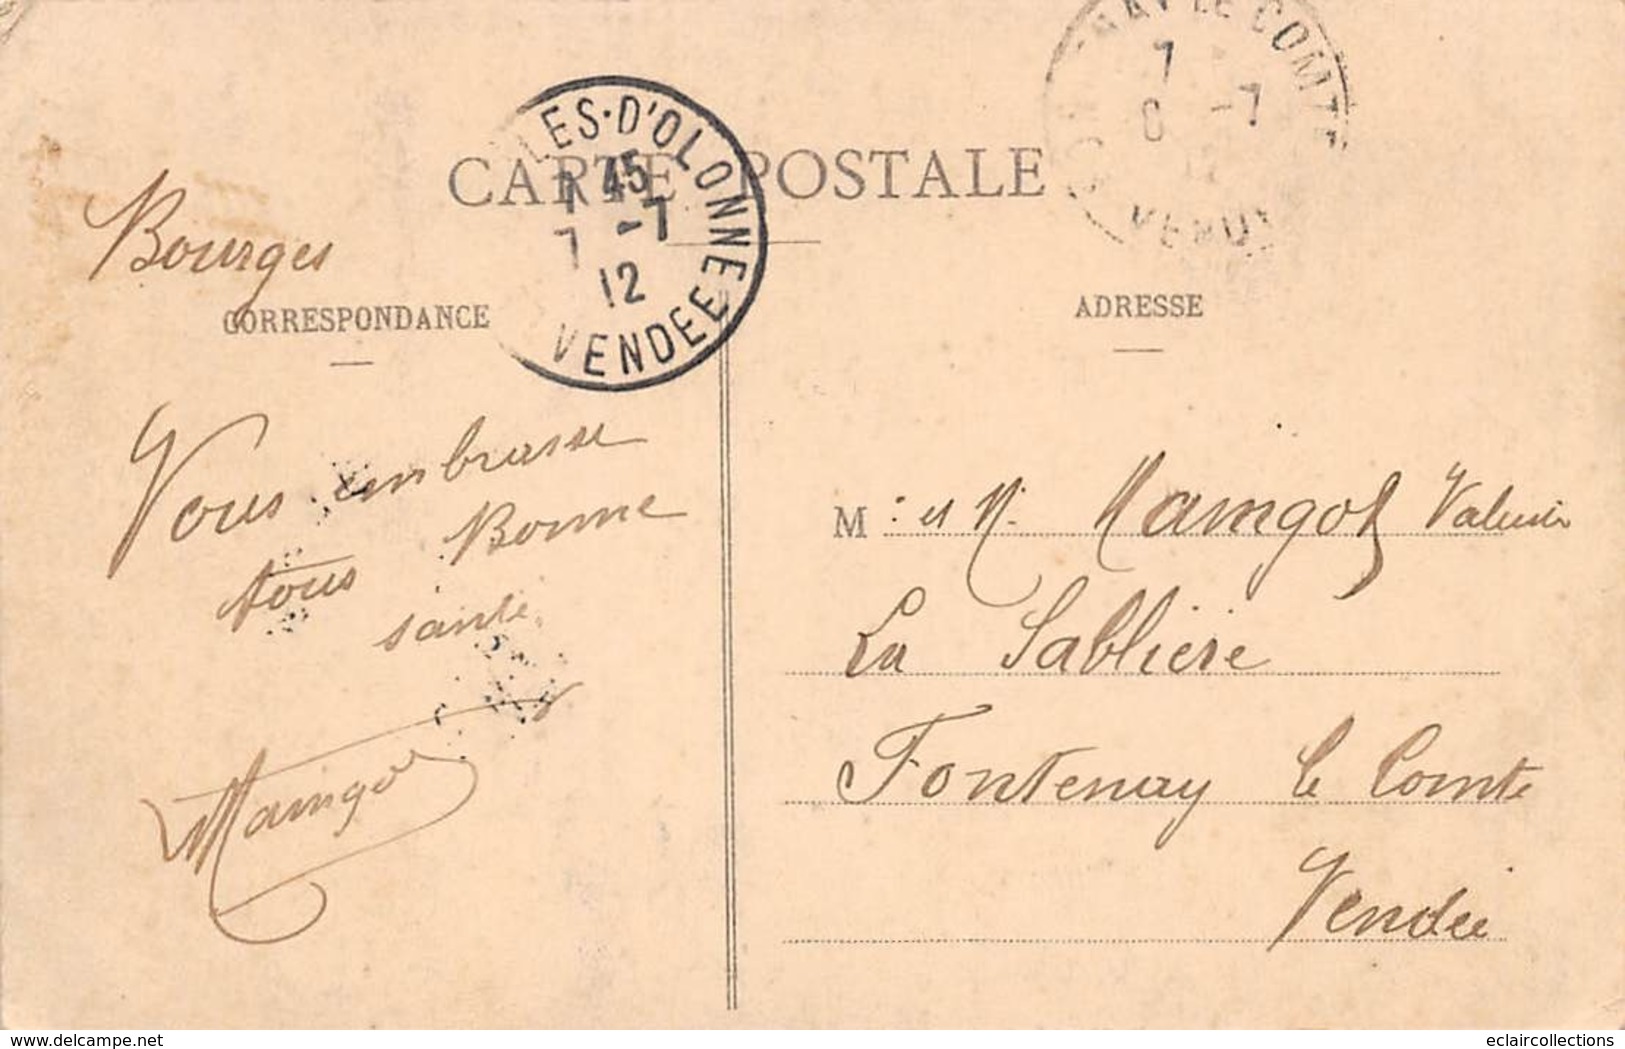 CARTE POSTALE
LES·D'OLONNE
7 45
7 -7
12
VENDEE
NAY LE COMTE
7
8 -7
12
VENDEE
Bourges
CORRESPONDANCE
Vous embrasse
tous Bonne
santé
Maingot
ADRESSE
M : et M. Maingot
La Sablière
Fontenay le Comte
Vendée
eclaircollections